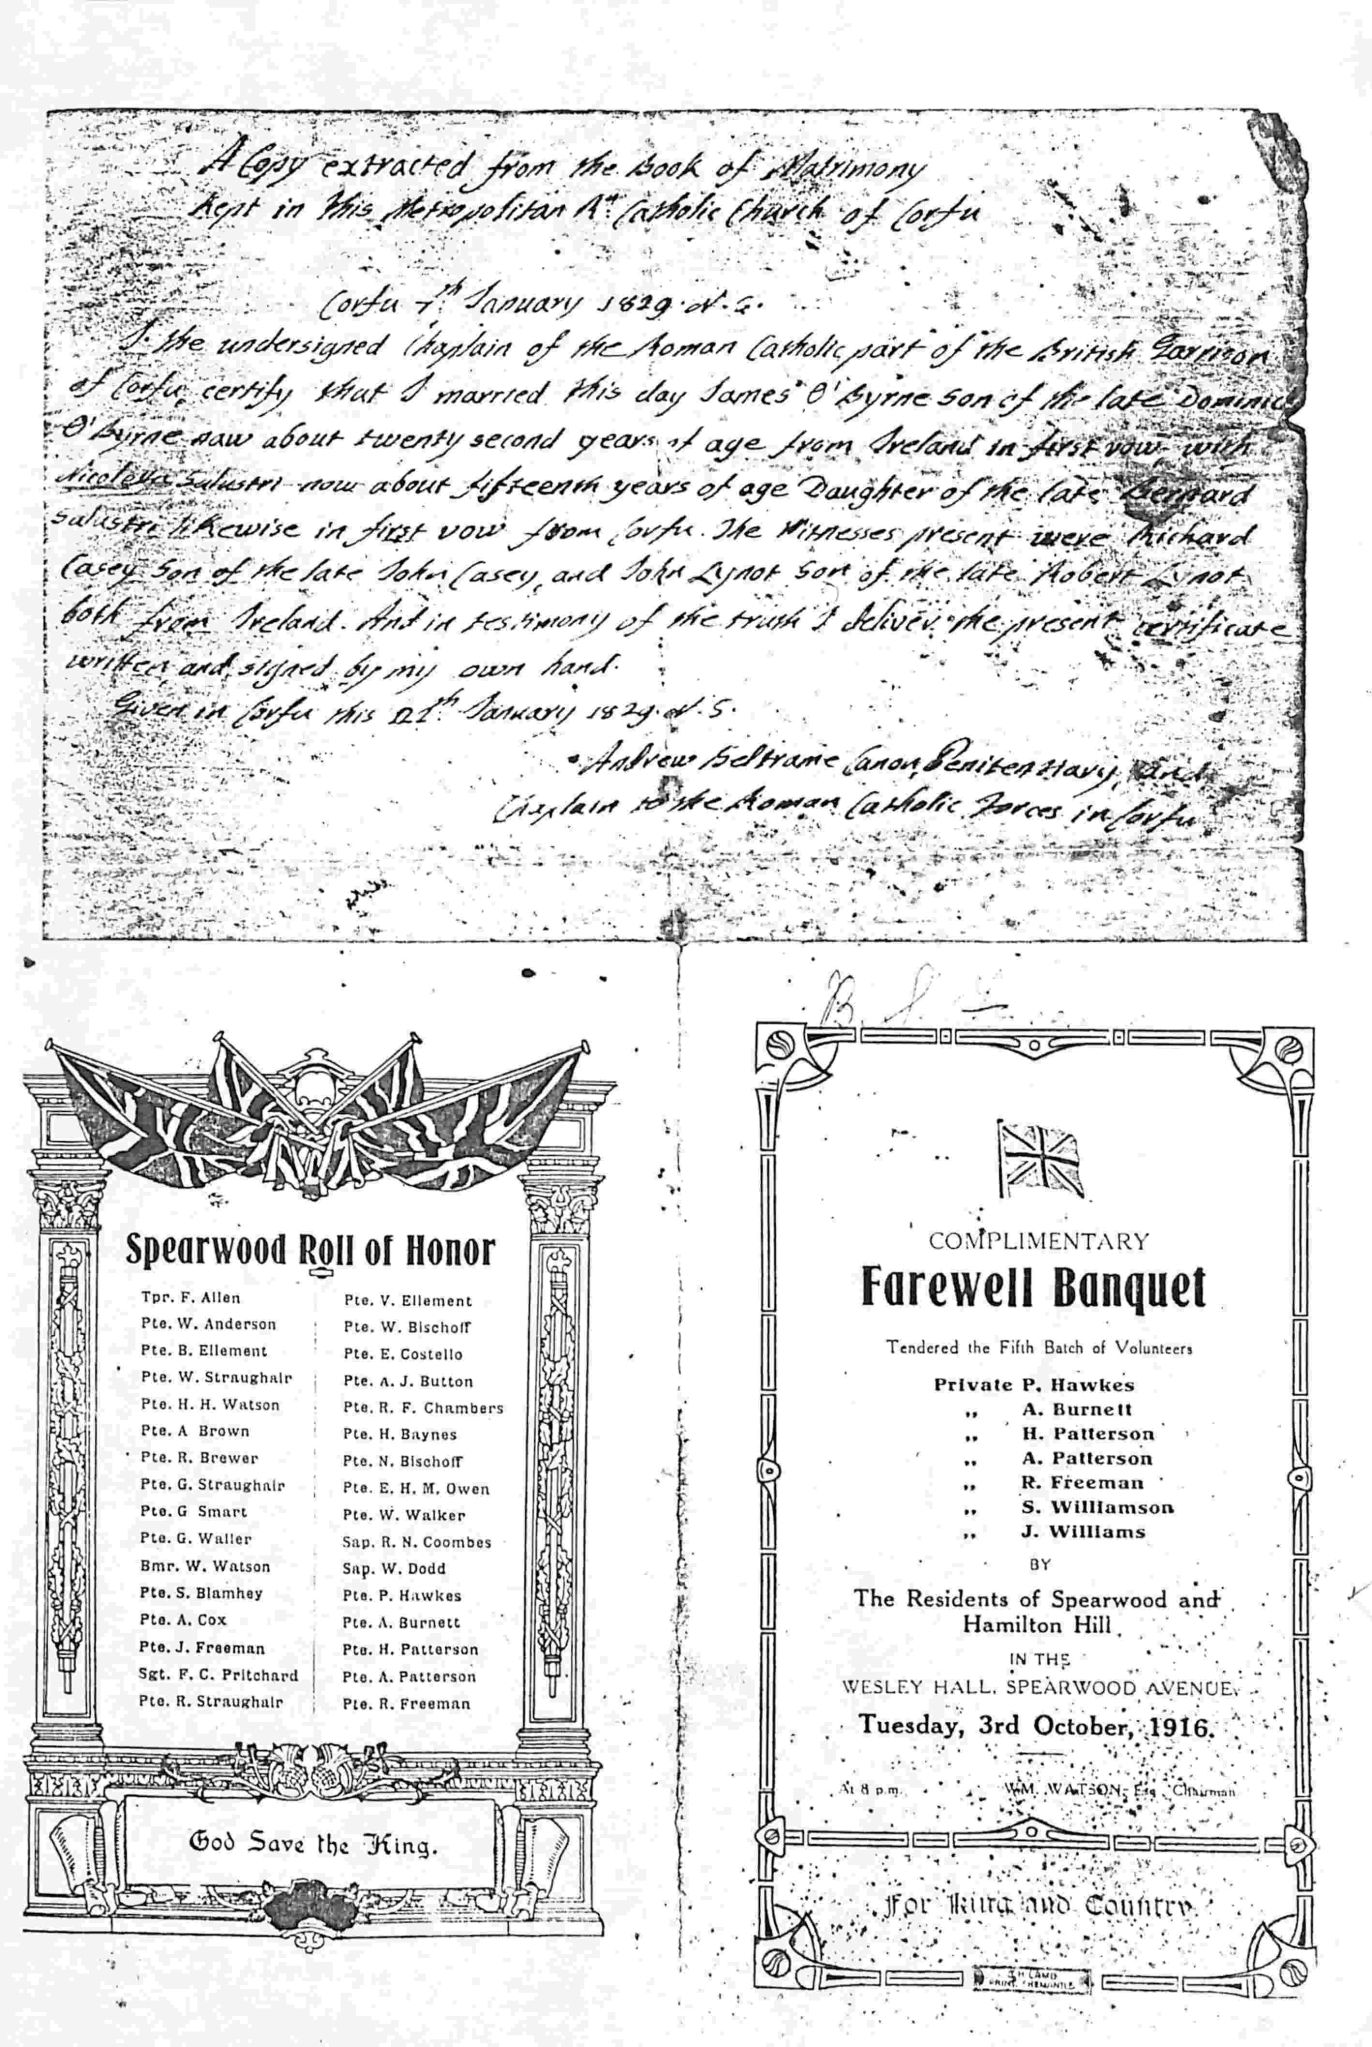 A Copy extracted from the Book of Matrimony
Kept in this Metropolitan Rn Catholic Church of Corfu
Corfu 7th January 1829. N. S.
I the undersigned Chaplain of the Roman Catholic part of the British Garrison
of Corfu, certify that I married this day James O'Byrne son of the late Dominick
O'Byrne now about twenty second years of age from Ireland in first vow, with
Nicoletta Salustri now about fifteenth years of age Daughter of the late Bernard
Salustri likewise in first vow from Corfu. The Witnesses present were Richard
Casey Son of the late John Casey, and John Lynot Son of the late Robert Lynot
both from Ireland. And in testimony of the truth I deliver the present certificate
written, and signed by my own hand.
Given in Corfu this January 1829. N. S.
Andrew Beltrame Canon, Penitentiary, and
Chaplain to the Roman Catholic Forces in Corfu
B. S.
Spearwood Roll of Honor
Tpr. F. Allen
Pte. W. Anderson
Pte. B. Ellement
Pte. W. Straughair
Pte. H. H. Watson
Pte. A Brown
Pte. R. Brewer
Pte. G. Straughair
Pte. G Smart
Pte. G. Waller
Bmr. W. Watson
Pte. S. Blamhey
Pte. A. Cox
Pte. J. Freeman
Sgt. F. C. Pritchard
Pte. R. Straughair
Pte. V. Ellement
Pte. W. Bischoff
Pte. E. Costello
Pte. A. J. Button
Pte. R. F. Chambers
Pte. H. Baynes
Pte. N. Bischoff
Pte. E. H. M. Owen
Pte. W. Walker
Sap. R. N. Coombes
Sap. W. Dodd
Pte. P. Hawkes
Pte. A. Burnett
Pte. H. Patterson
Pte. A. Patterson
Pte. R. Freeman
God Save the King.
COMPLIMENTARY
Farewell Banquet
Tendered the Fifth Batch of Volunteers
Private P. Hawkes
,, A. Burnett
,, H. Patterson
,, A. Patterson
,, R. Freeman
,, S. Williamson
,, J. Williams
BY
The Residents of Spearwood and
Hamilton Hill
IN THE
WESLEY HALL, SPEARWOOD AVENUE,
Tuesday, 3rd October, 1916.
At 8 p.m. WM. WATSON, Esq., Chairman
For King and Country
LAMB
PRINT. FREMANTLE